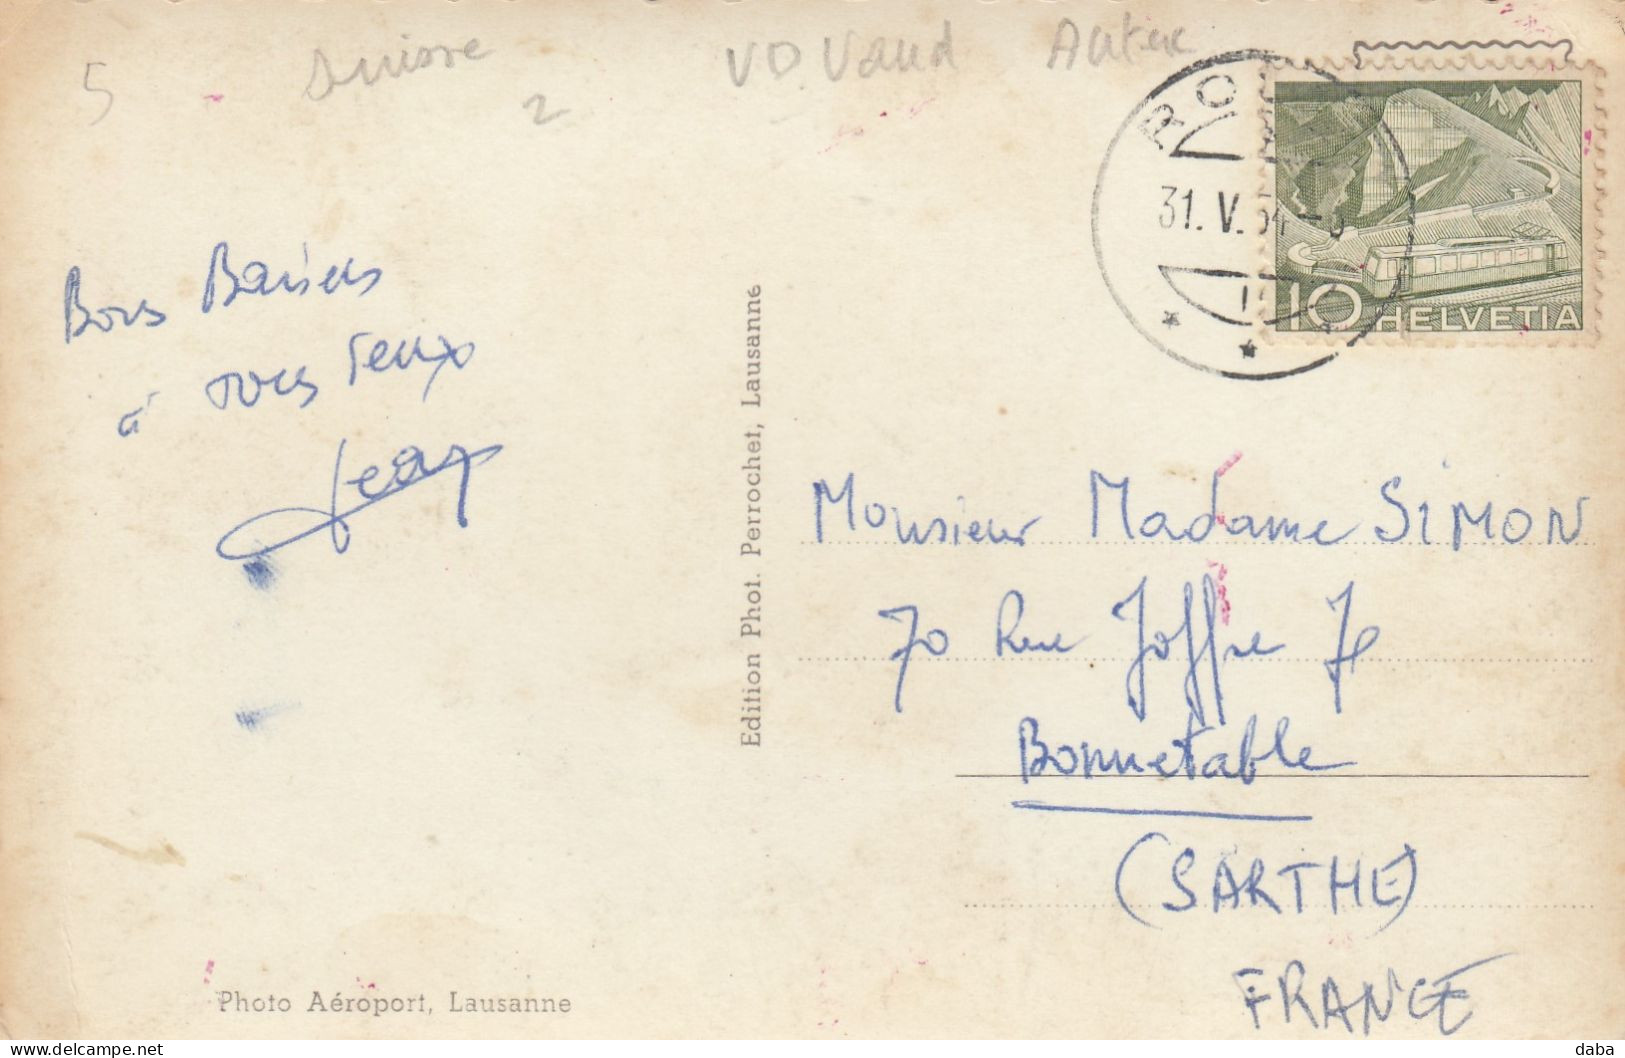 5
Suisse
2
VD. Vaud
RO
31. V. 54
10 HELVETIA
Bons Baisers
à vous deux
Jean
Edition Phot. Perrochet, Lausanne
Monsieur Madame SIMON
70 Rue Joffre
Bonnetable
(SARTHE)
FRANCE
Photo Aéroport, Lausanne
daba